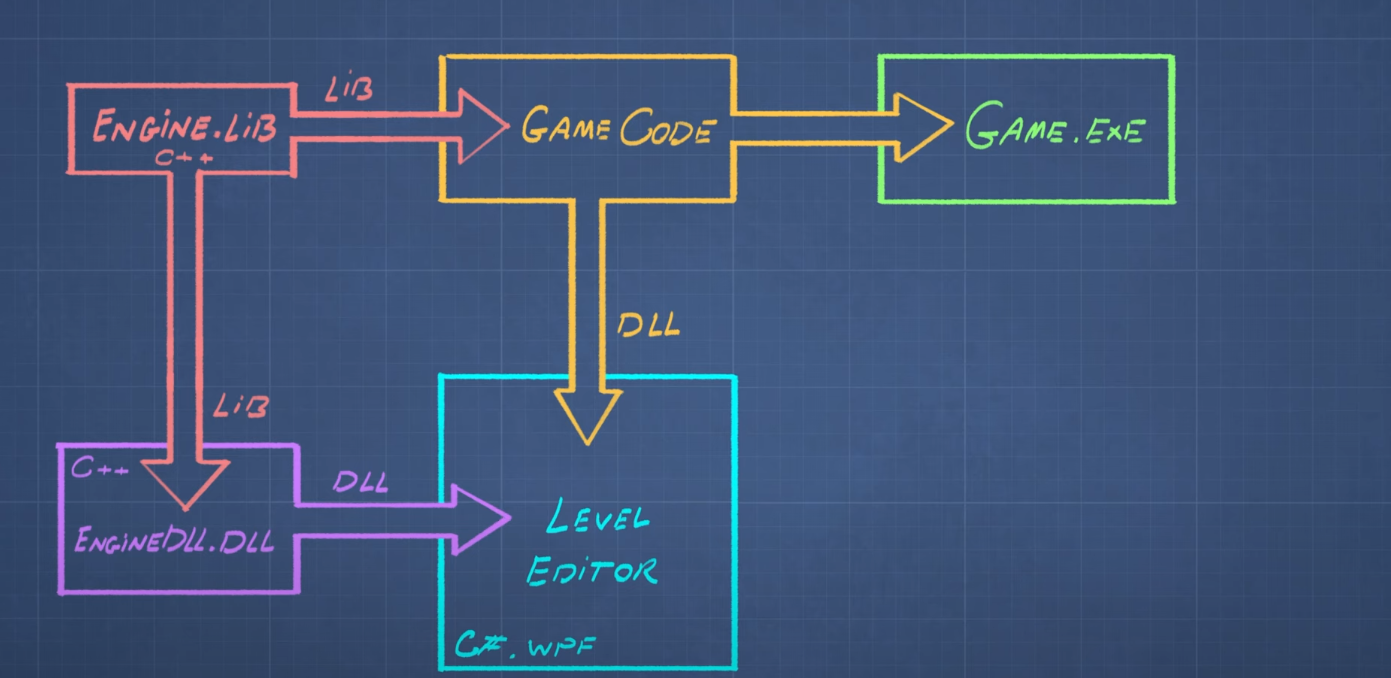 LiB
ENGiNE.LiB
C++
GAME CODE
GAME.EXE
DLL
LiB
C++
ENGiNEDLL.DLL
DLL
LEVEL
EDiTOR
C#.WPF